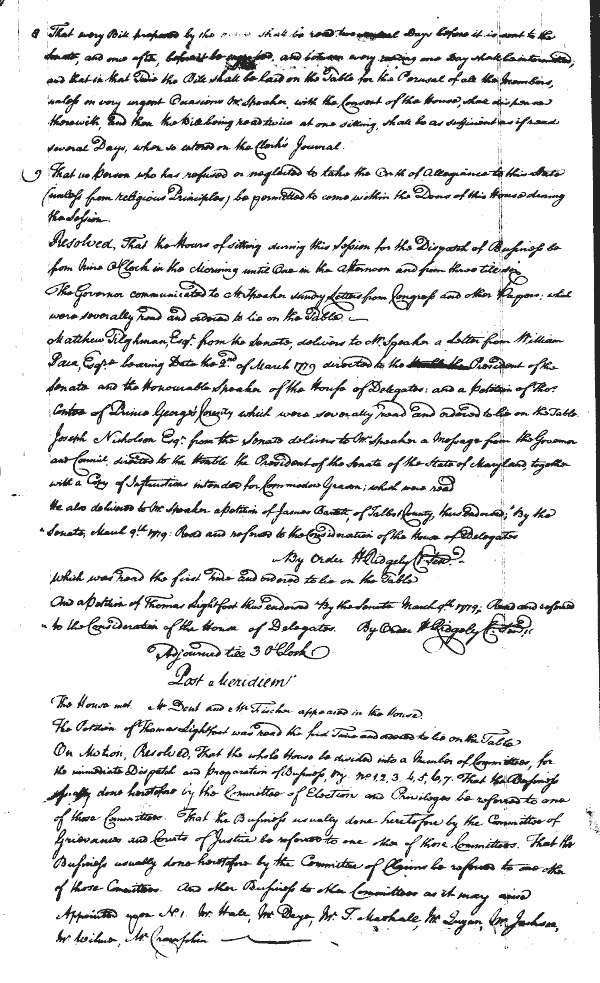 8 That every Bill prepared by the shall be read two several Days before it is sent to the
Senate, and one after, before it be and between every reading one Day shall be intermitted;
and that in that Time the Bill shall be laid on the Table for the Perusal of all the Members,
unless on very urgent Occasions Mr. Speaker, with the Consent of the House, shall dispense
therewith, and then the Bill being read twice at one sitting, shall be as sufficient as if read
several Days, when so entered on the Clerk's Journal.
9 That no Person who has refused or neglected to take the Oath of Allegiance to this State
(unless from religious Principles) be permitted to come within the Doors of this House during
the Session.
Resolved, That the Hours of sitting during this Session for the Dispatch of Business be
from Nine O'Clock in the Morning until One in the Afternoon and from three till six
The Governor communicated to Mr Speaker sundry Letters from Congress and other Papers; which
were severally read and ordered to lie on the Table.
Matthew Tilghman, Esqr. from the Senate, delivers to Mr. Speaker a Letter from William
Paca, Esqr. bearing Date the 2nd of March 1779 directed to the President of the
Senate and the Honourable Speaker of the House of Delegates: and a Petition of Thos.
Contee of Prince George's County which were severally read and ordered to lie on the Table
Joseph Nicholson Esqr. from the Senate delivers to Mr Speaker a Message from the Governor
and Council, directed to the Honble the President of the Senate of the State of Maryland, together
with a Copy of Instructions intended for Commodore Grason; which were read
He also delivers to Mr. Speaker a Petition of James of Talbot County, thus endorsed; "By the
"Senate, March 9th 1779: Read and referred to the Consideration of the House of Delegates
By Order H Ridgely Cl. Sen."
which was read the first Time and ordered to lie on the Table
And a Petition of Thomas Lightfoot thus endorsed "By the Senate March 9th 1779; Read and referred
"to the Consideration of the House of Delegates. By Order H Ridgely Cl. Sen."
Adjourned till 3 O'Clock
Post Meridiem
The House met. Mr Dent and Mr Fischer appeared in the House.
The Petition of Thomas Lightfoot was read the first Time and ordered to lie on the Table
On Motion, Resolved, That the whole House be divided into a Number of Committees, for
the immediate Dispatch and Preparation of Business, Viz No. 1, 2, 3, 4, 5, 6, 7. That the Business
usually done heretofore by the Committee of Election and Privileges be referred to one
of those Committees. That the Business usually done heretofore by the Committee of
Grievances and Courts of Justice be referred to one other of those Committees. That the
Business usually done heretofore by the Committee of Claims be referred to one other
of those Committees. And other Business to other Committees as it may arise
Appointed upon No 1. Mr. Hall, Mr. Mr. T. Marshall, Mr. Mr. Jackson,
Mr Wilmer, Mr. Cramphin